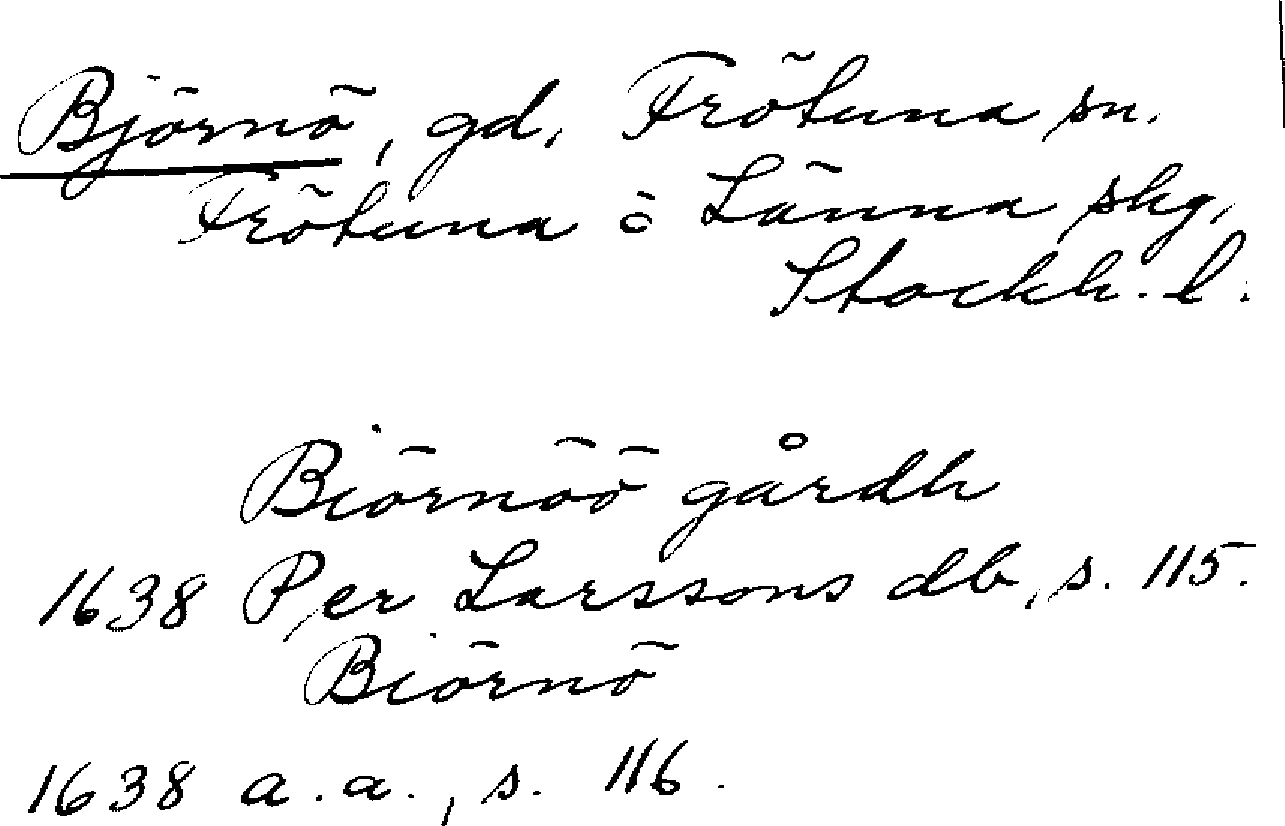 Björnö, gd, Frötuna sn.
Frötuna o Länna skg,
Stockh. l.
Biörnöö gårdh
1638 Per Larssons db, s. 115.
Biörnö
1638 a.a., s. 116.